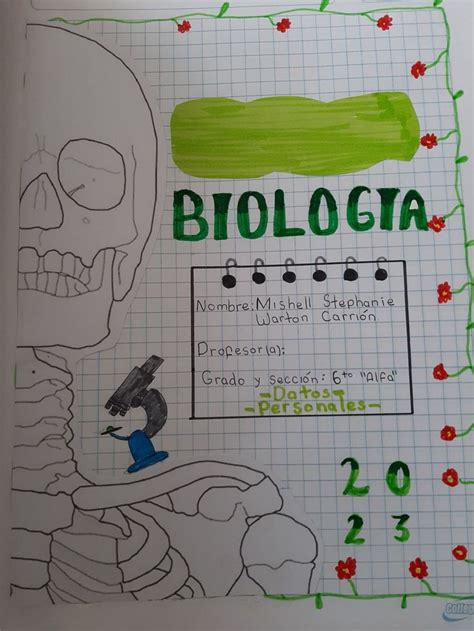 BIOLOGIA
Nombre: Mishell Stephanie
Warton Carrión
Profesor(a):
Grado y sección: 6to "Alfa"
-Datos-
-Personales-
20
23